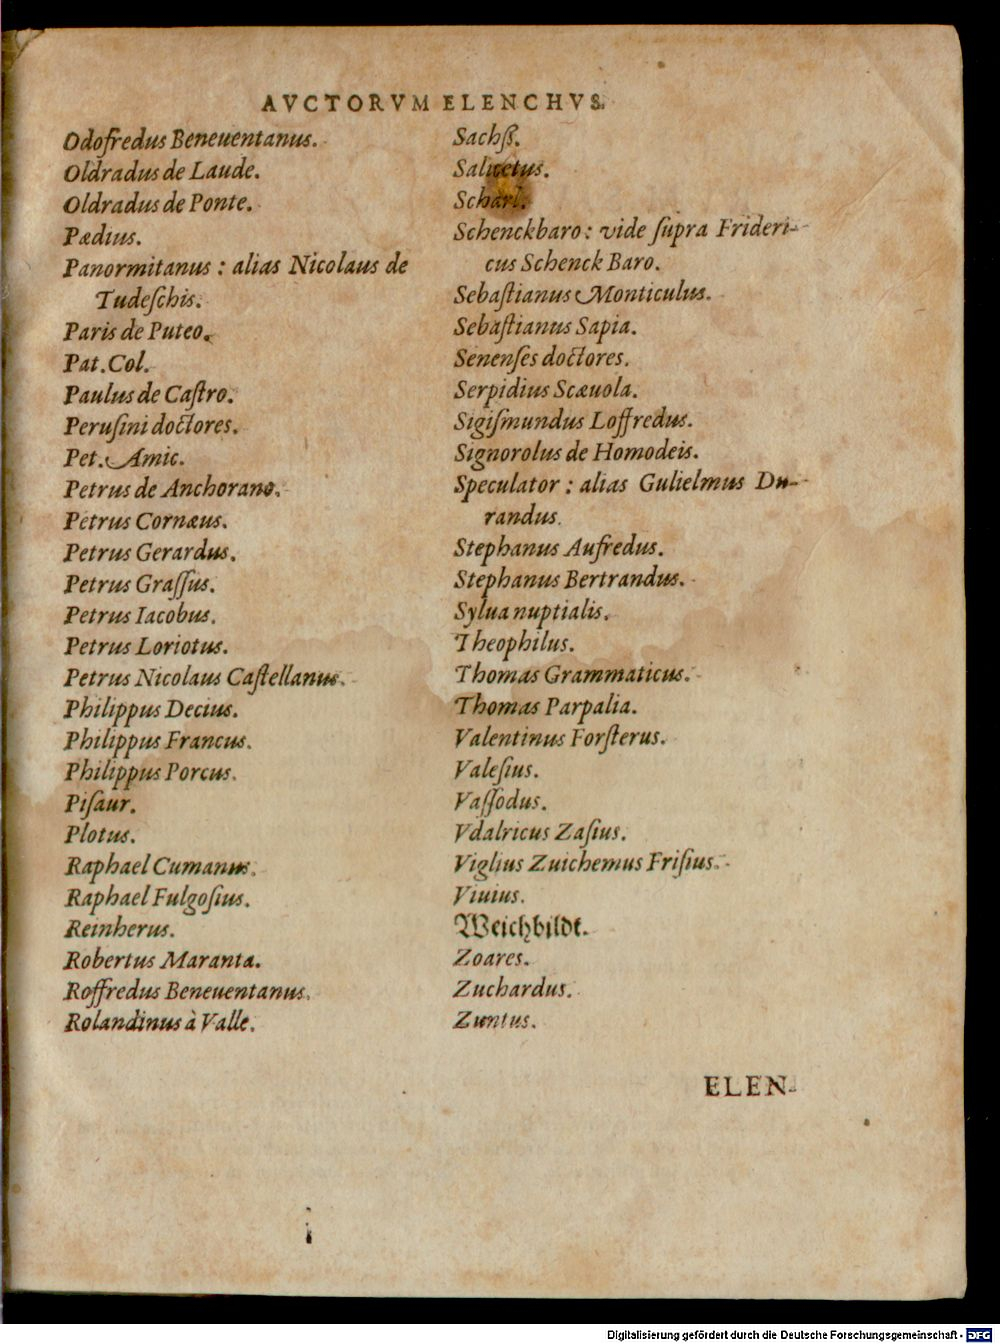 AVCTORVM ELENCHVS.
Odofredus Beneuentanus.
Oldradus de Laude.
Oldradus de Ponte.
Pædius.
Panormitanus : alias Nicolaus de
Tudeſchis.
Paris de Puteo.
Pat. Col.
Paulus de Caſtro.
Peruſini doctores.
Pet. Amic.
Petrus de Anchorano.
Petrus Cornæus.
Petrus Gerardus.
Petrus Graſſus.
Petrus Iacobus.
Petrus Loriotus.
Petrus Nicolaus Caſtellanus.
Philippus Decius.
Philippus Francus.
Philippus Porcus.
Piſaur.
Plotus.
Raphael Cumanus.
Raphael Fulgoſius.
Reinherus.
Robertus Maranta.
Roffredus Beneuentanus.
Rolandinus à Valle.
Sachß.
Salicetus.
Scharl.
Schenckbaro : vide ſupra Frideri-
cus Schenck Baro.
Sebaſtianus Monticulus.
Sebaſtianus Sapia.
Senenſes doctores.
Serpidius Scæuola.
Sigiſmundus Loffredus.
Signorolus de Homodeis.
Speculator : alias Gulielmus Du-
randus.
Stephanus Aufredus.
Stephanus Bertrandus.
Sylua nuptialis.
Theophilus.
Thomas Grammaticus.
Thomas Parpalia.
Valentinus Forſterus.
Valeſius.
Vaſſodus.
Vdalricus Zaſius.
Viglius Zuichemus Friſius.
Viuius.
Weichbildt.
Zoares.
Zuchardus.
Zuntus.
ELEN-
Digitalisierung gefördert durch die Deutsche Forschungsgemeinschaft - DFG